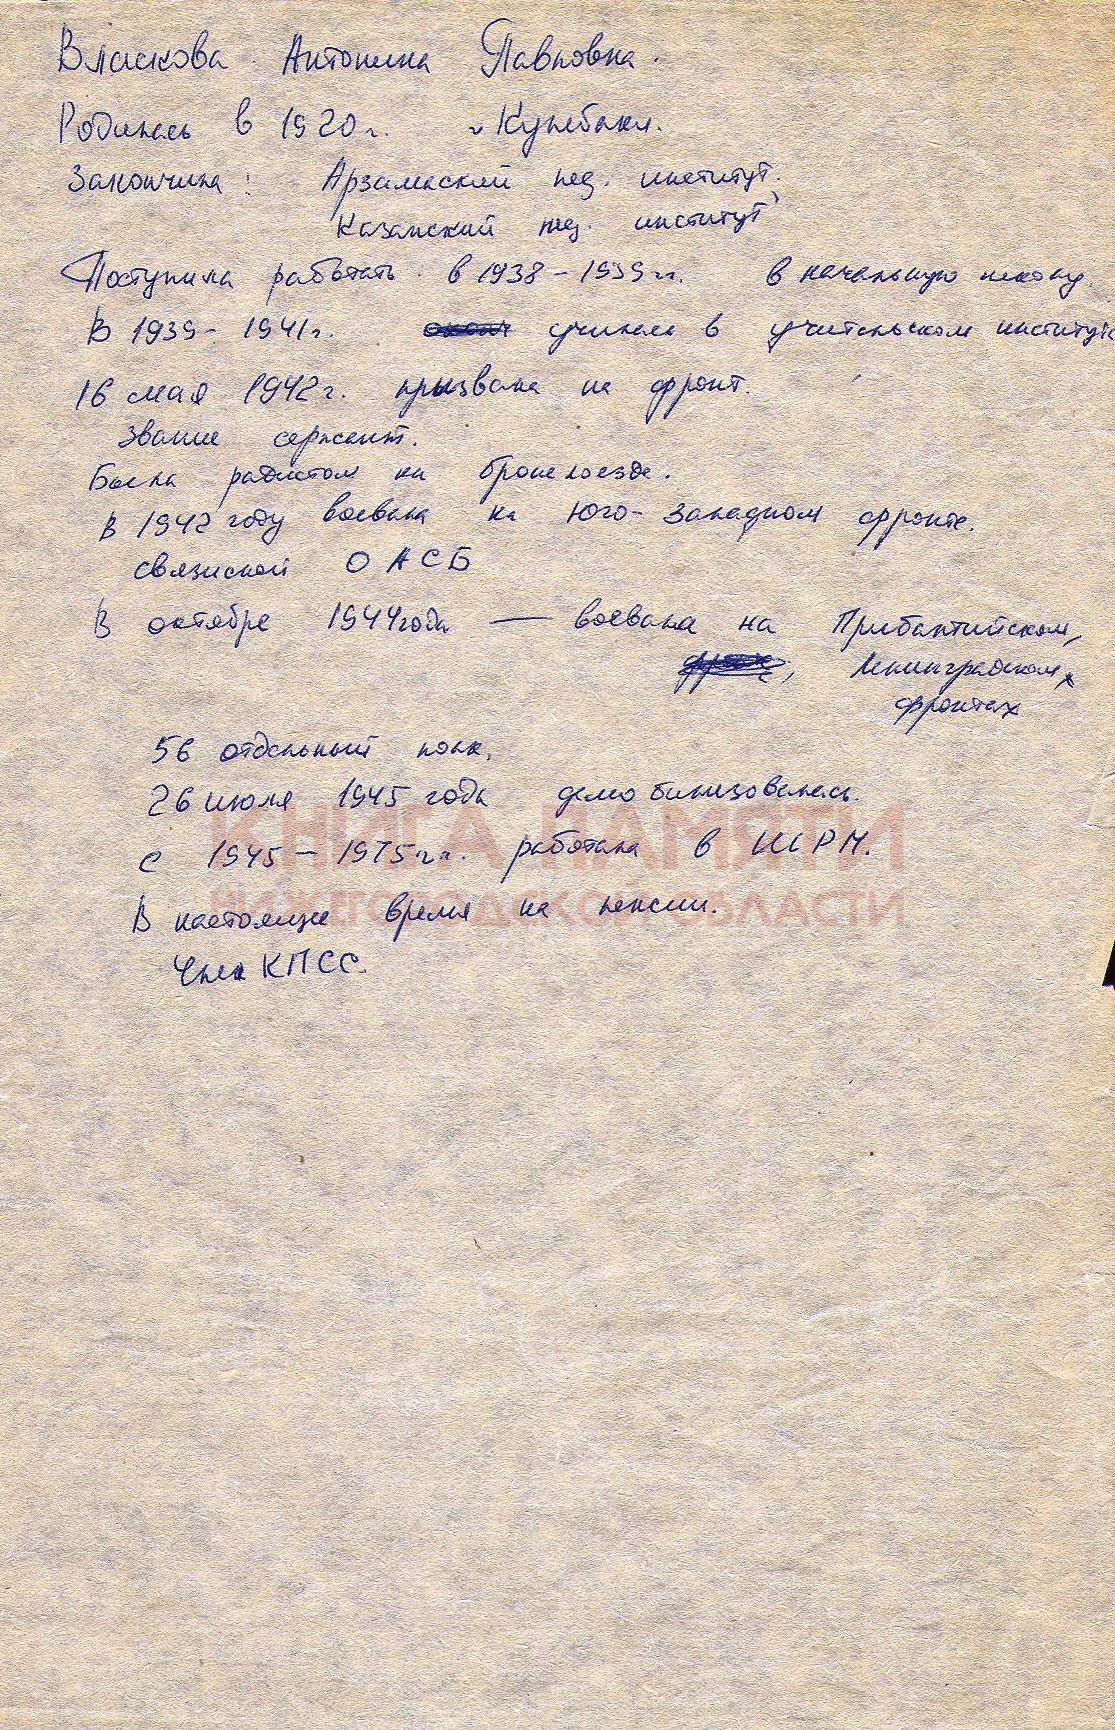 Власкова Антонина Павловна.
Родилась в 1920 г. г Кулебаки.
Закончила: Арзамаский пед. институт.
Казанский пед. институт
Поступила работать в 1938 – 1939 гг. в начальную школу
В 1939 - 1941 г. училась в учительском институте
16 мая 1942 г. призвана на фронт.
Звание сержант.
Была радистом на бронепоезде.
В 1942 году воевала на Юго-Западном фронте.
связиской ОАСБ
В октябре 1944 года — воевала на Прибалтийском,
, Ленинградском
фронтах
56 отдельный полк.
26 июля 1945 года демобилизовалась.
С 1945 – 1975 г.г. работала в ШРМ.
В настоящее время на пенсии.
Член КПСС.
КНИГА ПАМЯТИ
НИЖЕГОРОДСКОЙ ОБЛАСТИ